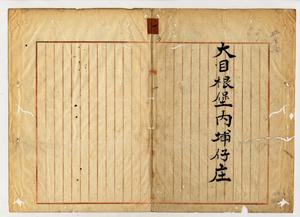 大目根堡内埔仔庄